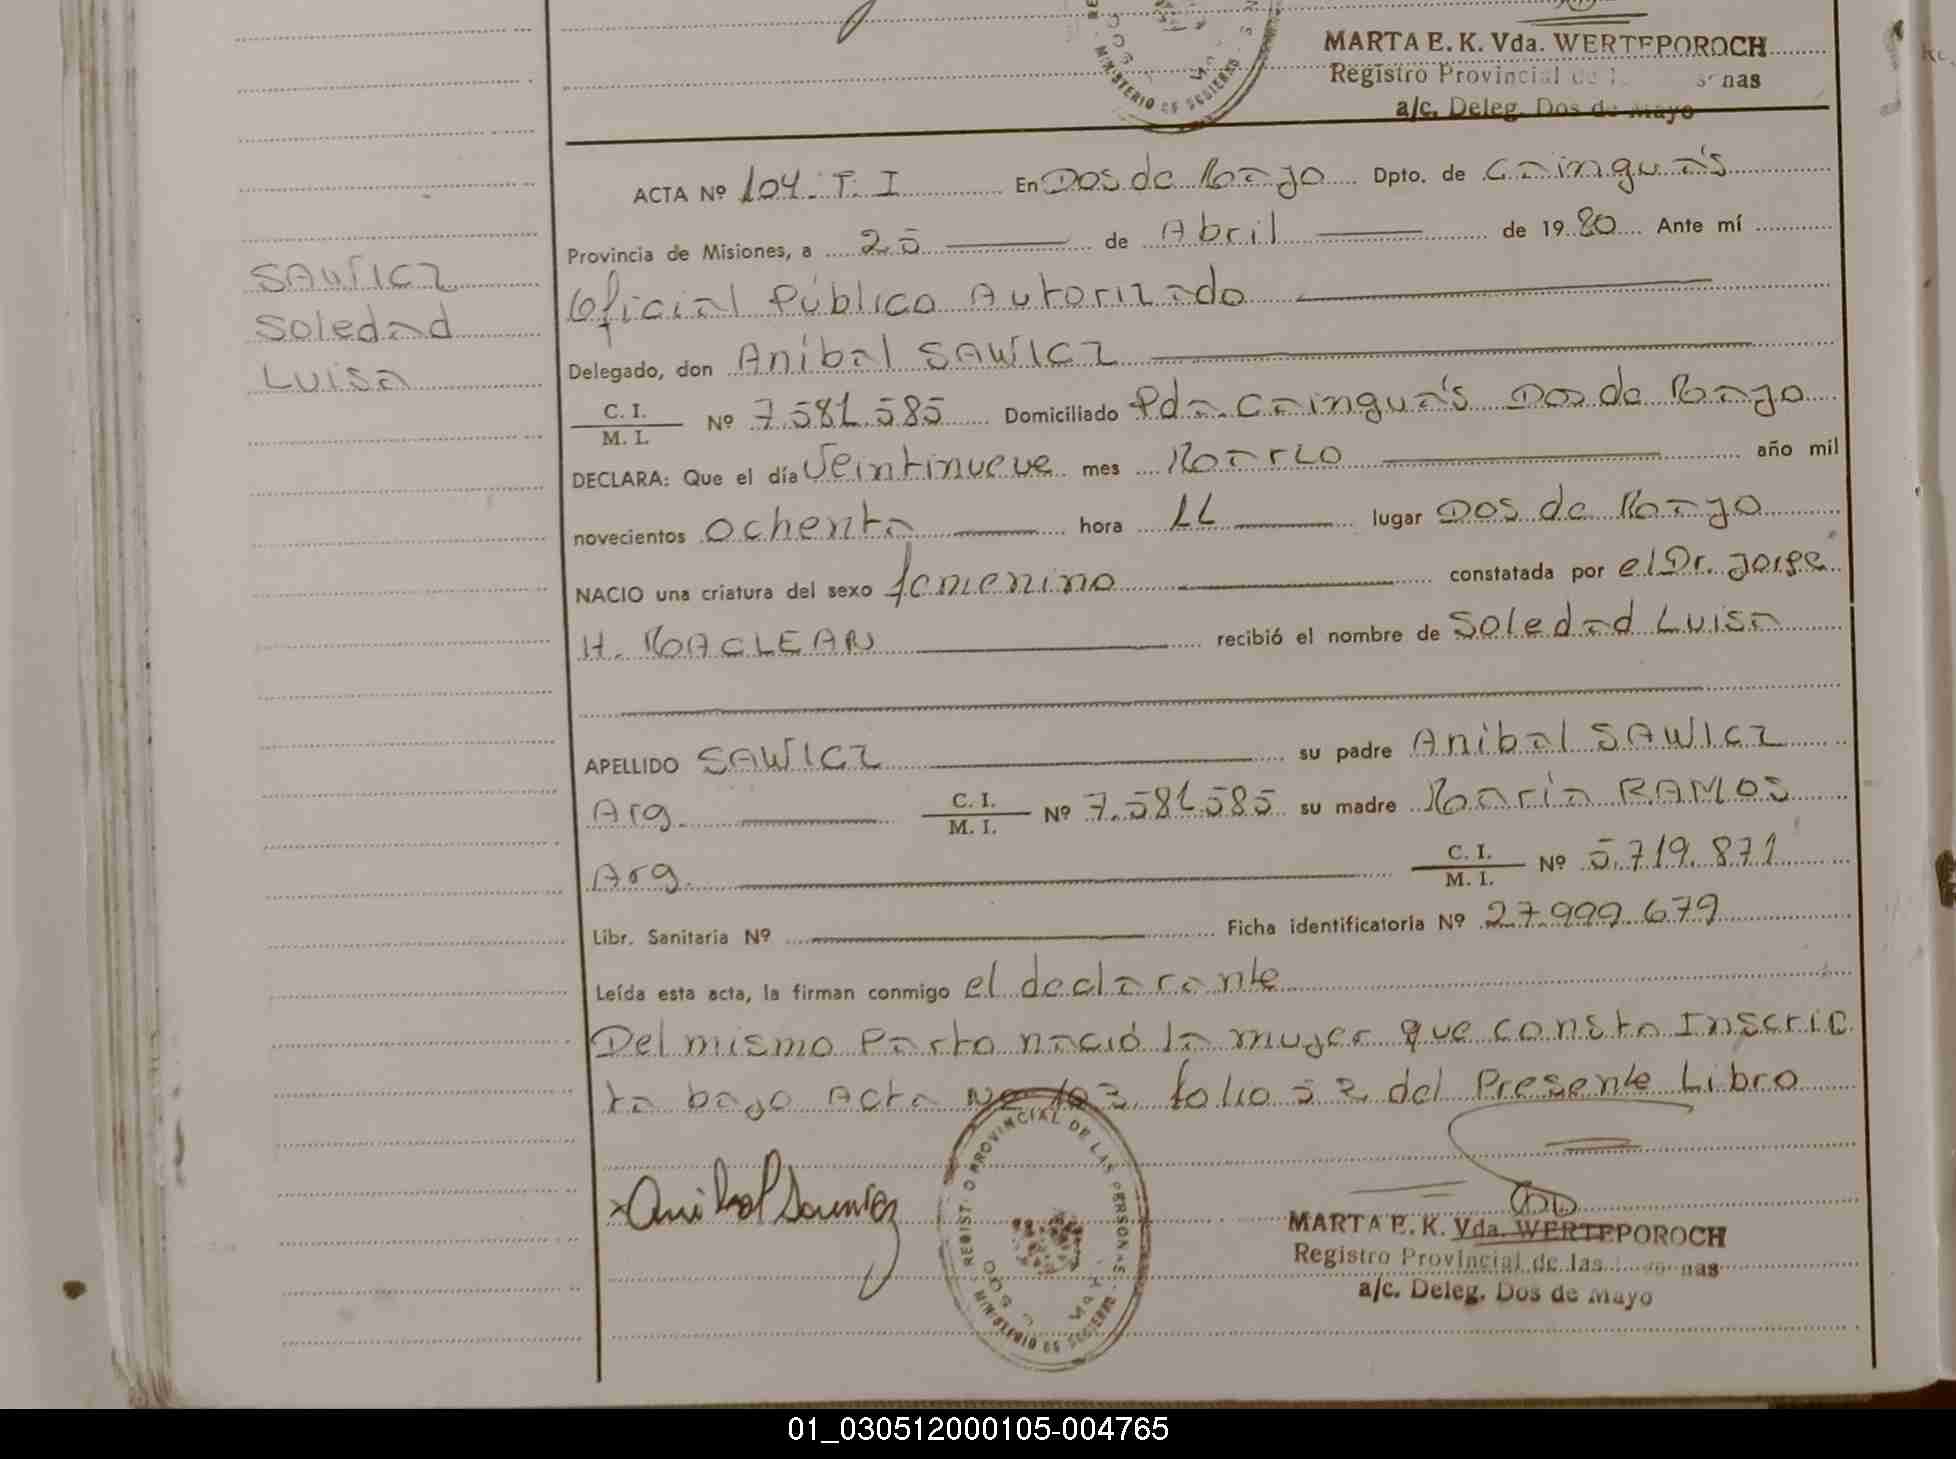 MARTA E. K. Vda. WERTEPOROCH
Registro Provincial de nas
a/c. Deleg. Dos de Mayo
MINISTERIO DE GOBIERNO
ACTA Nº 104. T. I En Dos de Mayo Dpto. de Cainguás
Provincia de Misiones, a 25 de Abril de 1980 Ante mí
SAWICZ
Oficial Público Autorizado
Soledad
Delegado, don Anibal SAWICZ
Luisa
C. I.
M. I. Nº 7.581.585 Domiciliado Pda. Cainguás Dos de Mayo
DECLARA: Que el día Veintinueve mes Marzo año mil
novecientos ochenta hora 11 lugar Dos de Mayo
NACIO una criatura del sexo femenino constatada por el Dr. Jorge
H. MACLEAN recibió el nombre de Soledad Luisa
APELLIDO SAWICZ su padre Anibal SAWICZ
Arg. C. I. M. I. Nº 7.581.585 su madre María RAMOS
Arg. C. I. M. I. Nº 5.719.871
Libr. Sanitaria Nº Ficha identificatoria Nº 27.999.679
Leída esta acta, la firman conmigo el declarante
Del mismo Parto nació la mujer que consta Inscrip
ta bajo Acta Nº 103 folio 52 del Presente Libro
REGISTRO PROVINCIAL DE LAS PERSONAS
MINISTERIO DE GOBIERNO
Anibal Sawicz
MARTA E. K. Vda. WERTEPOROCH
Registro Provincial de las nas
a/c. Deleg. Dos de Mayo
01_030512000105-004765